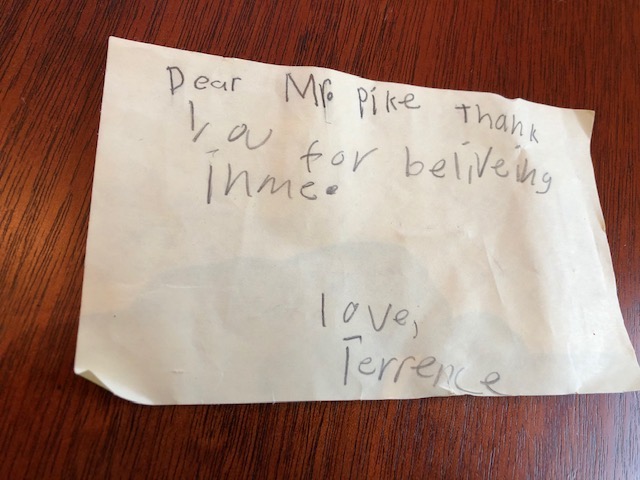 Dear Mr. Pike Thank
You for beliveing
inme.
love,
Terrence